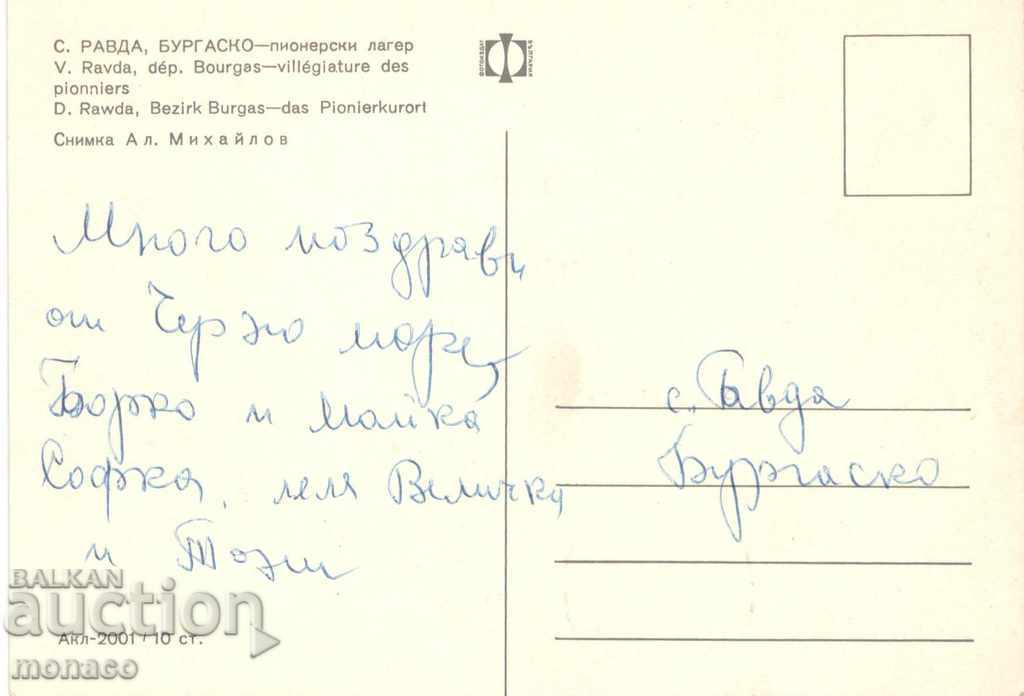 С. РАВДА, БУРГАСКО—пионерски лагер
V. Ravda, dép. Bourgas—villégiature des
pionniers
D. Rawda, Bezirk Burgas—das Pionierkurort
Снимка Ал. Михайлов
ФОТОИЗДАТ
БЪЛГАРИЯ
Много поздрави
от Черно море
Борко и майка
Софка, леля Величка
и Този
с. Равда
Бургаско
BALKAN
auction
Акл-2001 / 10 ст.
monaco